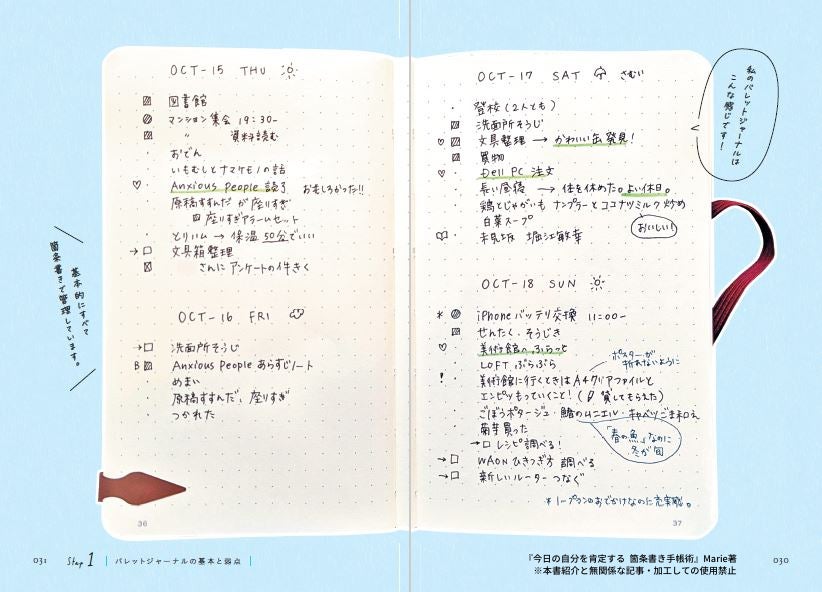 OCT-15 THU
図書館
マンション集会 19:30-
〃 資料読む
おでん
いもむしとナマケモノの話
♡ Anxious People 読了 おもしろかった!!
原稿すすんだが座りすぎ
座りすぎアラームセット
とりハム → 保温50分でいい
→□ 文具箱整理
さんにアンケートの件きく
OCT-16 FRI
→□ 洗面所そうじ
B Anxious People あらすじノート
めまい
原稿すすんだ、座りすぎ
つかれた
36
基本的にすべて
箇条書きで管理しています。
OCT-17 SAT さむい
登校(2人とも)
洗面所そうじ
♡ 文具整理 → かわいい缶発見!
買物
♡ Dell PC 注文
長い昼寝 → 体を休めた。よい休日。
鶏とじゃがいも ナンプラーとココナツミルク炒め
白菜スープ
おいしい!
堀江敏幸
OCT-18 SUN
* iPhone バッテリ交換 11:00-
せんたく、そうじき
♡ 美術館へふらっと
LOFT ぶらぶら
ポスターが
折れないように
! 美術館に行くときはA4クリアファイルと
エンピツもっていくこと!( 貸してもらえた)
ごぼうポタージュ・鰆のムニエル・キャベツごま和え
「春の魚」なのに
冬が旬
菊芋買った
→□ レシピ調べる!
→□ WAON ひきつぎ方 調べる
→□ 新しいルーター つなぐ
* ノープランのおでかけなのに充実感。
37
私のバレットジャーナルは
こんな感じです!
031 Step 1 バレットジャーナルの基本と弱点
『今日の自分を肯定する 箇条書き手帳術』Marie著
※本書紹介と無関係な記事・加工しての使用禁止
030